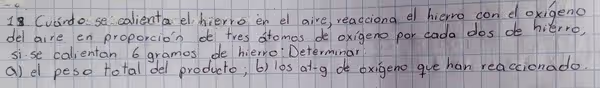 18 Cuándo se calienta el hierro en el aire, reacciona el hierro con el oxígeno
del aire en proporción de tres átomos de oxígeno por cada dos de hierro,
si se calientan 6 gramos de hierro: Determinar
a) el peso total del producto; b) los at-g de oxígeno que han reaccionado.